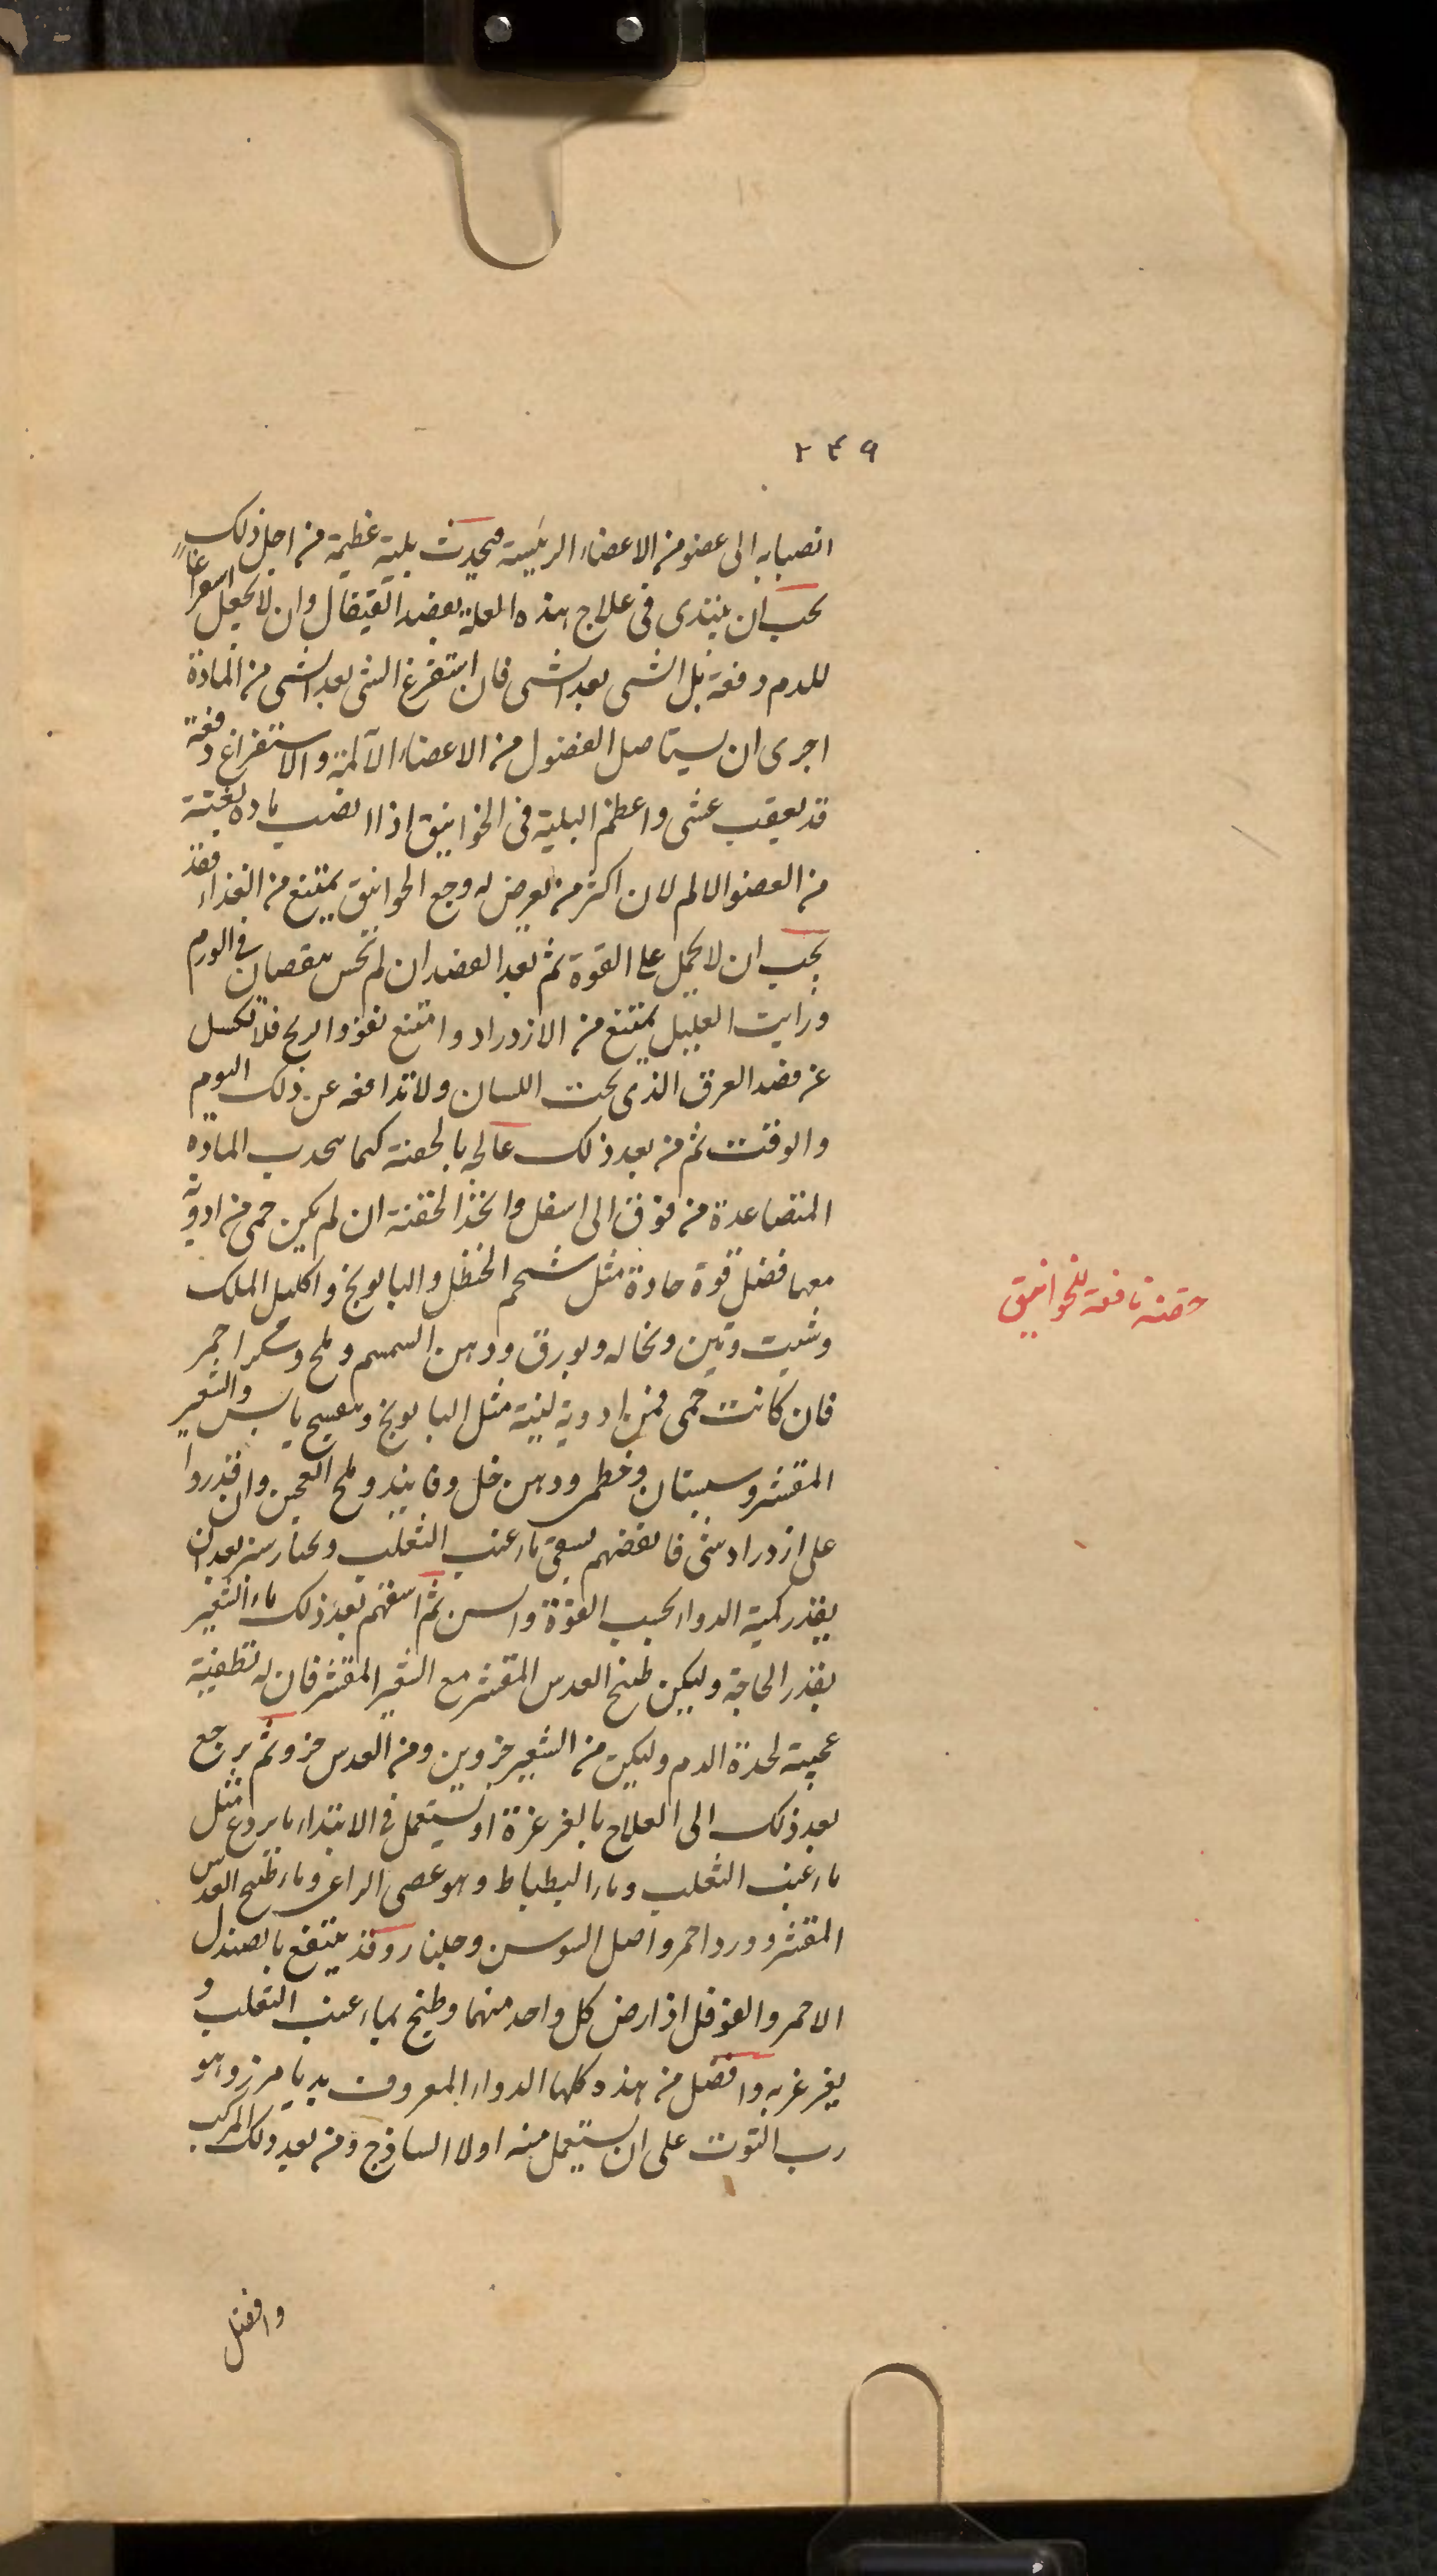 ٢٤٩
انصبابه الى عضو من الاعضاء الرئيسة فيحدث بلية عظيمة من اجل ذلك
يجب ان يبتدى فى علاج هذه العلة بفصد القيفال وان لا يجعل اسفراغا
للدم دفعة بل الشى بعد الشى فان استفرغ الشى بعد الشى من المادة
احرى ان يستاصل الفضول من الاعضاء الآلمة والاستفراغ دفعة
قد يعقب غشى واعظم البلية فى الخوانيق اذا انصب مادة بغتة
من العضو الالم لان اكثر من يعرض له وجع الخوانيق يمتنع من الغذاء فقد
يجب ان لا يحمل على القوة ثم بعد الفصد ان لم تحس بنقصان فى الورم
ورايت العليل يمتنع من الازدراد وامتنع نفوذ الريح فلا تكسل
عن فصد العرق الذى تحت اللسان ولا تدافعه عن ذلك اليوم
والوقت ثم من بعد ذلك عالجه بالحقنة كيما تجذب المادة
المتصاعدة من فوق الى اسفل واتخذ الحقنة ان لم يكن حمى من ادوية
معها فضل قوة حادة مثل شحم الحنظل والبابونج واكليل الملك
وشبت وتين ونخاله وبورق ودهن السمسم وملح وسكر احمر
فان كانت حمى فمن ادوية لينة مثل البابونج وبنفسج يابس والشعير
المقشر وسبستان وخطمى ودهن خل وفانيذ وملح العجين وان قدروا
على ازدراد شى فانفضهم بسقى ماء عنب الثعلب وخيارشنبر بعد ان
يقدر كمية الدواء بحسب القوة والسن ثم اسقهم بعد ذلك ماء الشعير
بقدر الحاجة وليكن طبخ العدس المقشر مع الشعير المقشر فان له تطفية
عجيبة لحدة الدم وليكن من الشعير جزوين ومن العدس جزو ثم يرجع
بعد ذلك الى العلاج بالغرغرة او يستعمل فى الابتداء ما يردع مثل
ماء عنب الثعلب وماء البطباط وهو عصى الراعى وماء طبخ العدس
المقشر وورد احمر واصل السوسن وجلنار وقد ينتفع بالصندل
الاحمر والفوفل اذا رض كل واحد منهما وطبخ بماء عنب الثعلب و
يغرغر به وافضل من هذه كلها الدواء المعروف بديامرز وهو
رب التوت على ان يستعمل منه اولا الساذج ومن بعد ذلك المركب
وافضل
حقنه نافعة للخوانيق